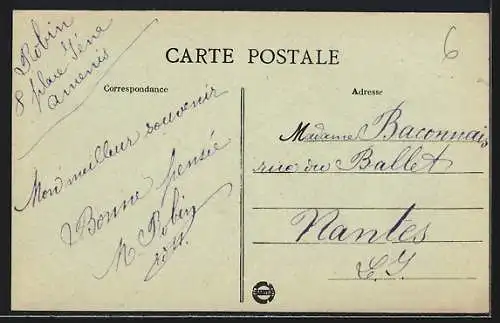 Robin
8 place Iéna
Amiens
6
CARTE POSTALE
Correspondance
Adresse
Mon meilleur souvenir
Bonne pensée
M Robin
Madame Baconnais
rue du Ballet
Nantes
L. I.